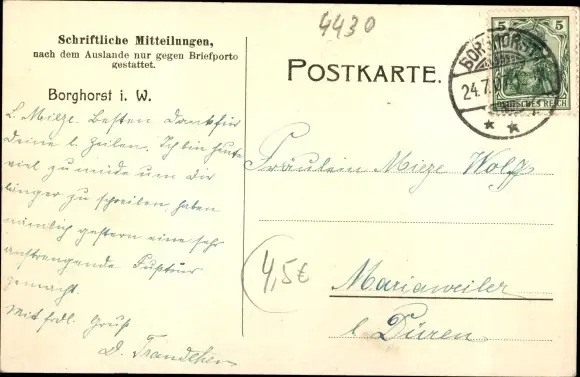 4430
Schriftliche Mitteilungen,
nach dem Auslande nur gegen Briefporto
gestattet.
POSTKARTE.
5 5
DEUTSCHES REICH
BORGHORST
24.7.
Borghorst i. W.
L. Mieze. Besten Dank für
Deine l. Zeilen. Ich bin heute
viel zu müde um Dir
länger zu schreiben, haben
nämlich gestern eine sehr
anstrengende Fußtour
gemacht.
Mit frdl. Gruß
D.
Fräulein Mieze Wolff
4,5€
Mariaweiler
b. Düren